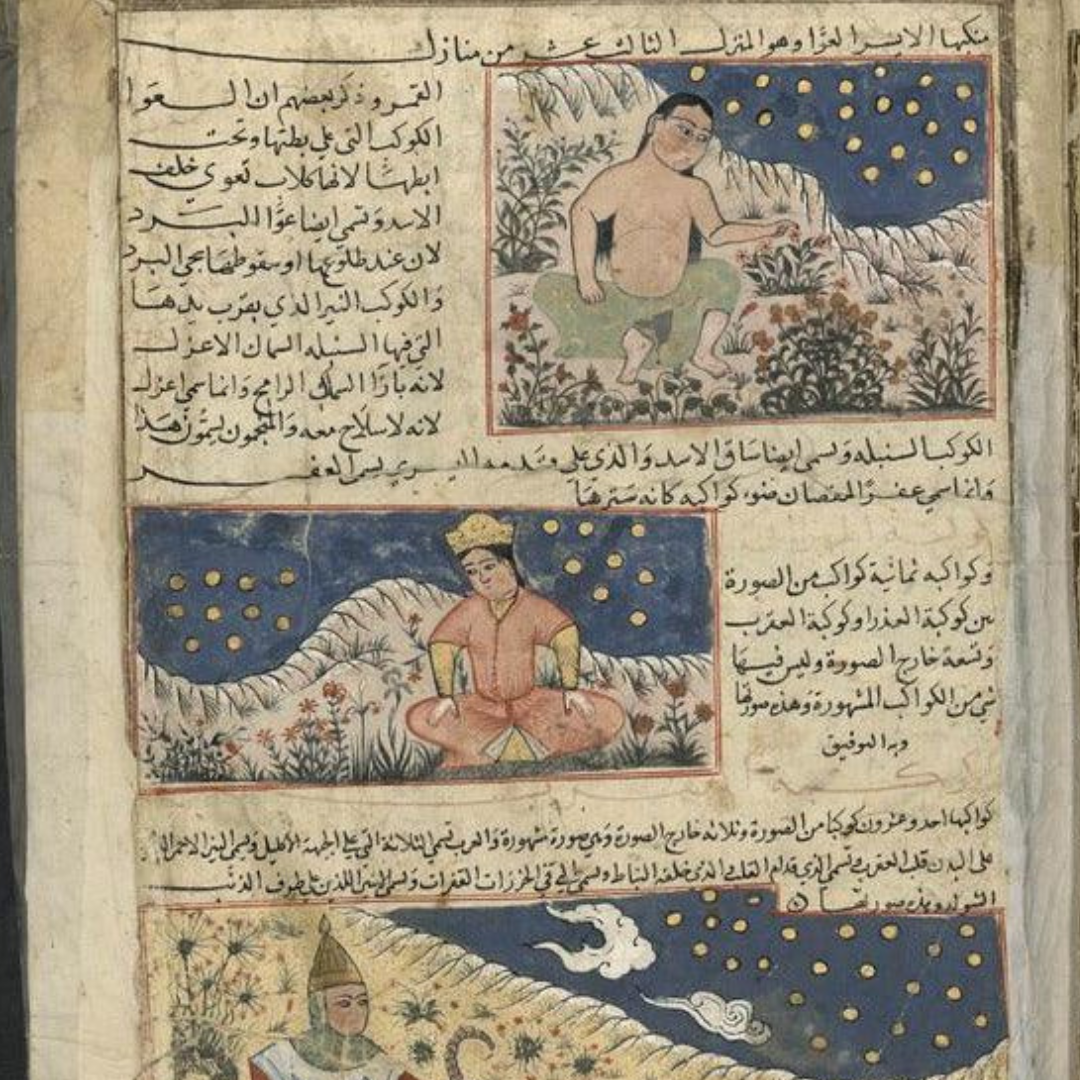 منكبها الايسر العوا وهو المنزل الثالث عشر من منازل
القمر وذكر بعضهم ان العوا
الكوكب التي على بطنها وتحت
ابطها لانها كلاب تعوي خلف
الاسد وتسمى ايضا عوا البرد
لان عند طلوعها او سقوطها يجي البرد
والكوكب النير الذي بقرب يدها
التي فيها السنبله السماك الاعزل
لانه بازا السماك الرامح وانما سمي اعزل
لانه لا سلاح معه والمنجمون يسمون هذا
الكوكب السنبله ويسمى ايضا ساق الاسد والذي على قدمه اليسرى يسمى الغفر
وانما سمي غفرا لنقصان ضوء كواكبه كانه سترها
وكواكبه ثمانية كواكب من الصورة
بين كوكبة العذرا وكوكبة العقرب
وتسعة خارج الصورة وليس فيها
شي من الكواكب المشهورة وهذه صورتها
وبه التوفيق
كواكبها احد وعشرون كوكبا من الصورة وثلاثه خارج الصورة وهي صورة مشهورة والعرب تسمي الثلاثة التي على الجبهة الاكليل ويسمى النير الاحمر
على البدن قلب العقرب وتسمى الذي قدام القلب والذي خلفه النياط وتسمى التي في الخرزات الفقرات وتسمى النيرين اللذين على طرف الذنب
الشوله وهذه صورتها